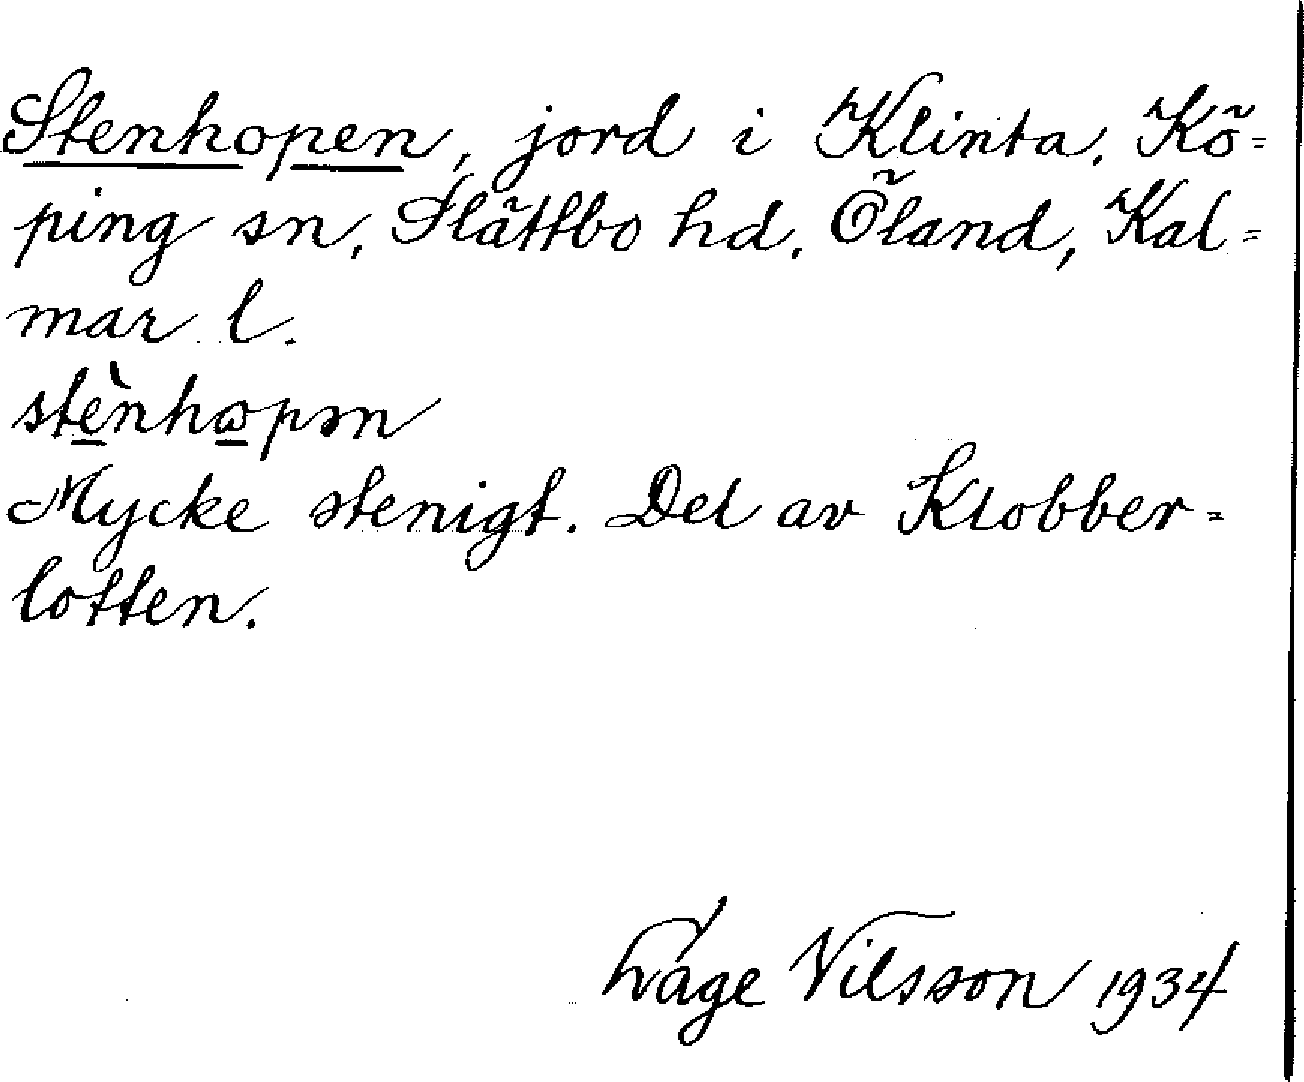 Stenhopen, jord i Klinta, Kö=
ping sn, Slättbo hd, Öland, Kal=
mar l.
stènhωpən
Mycke stenigt. Del av Klobber=
lotten.
Låge Nilsson 1934